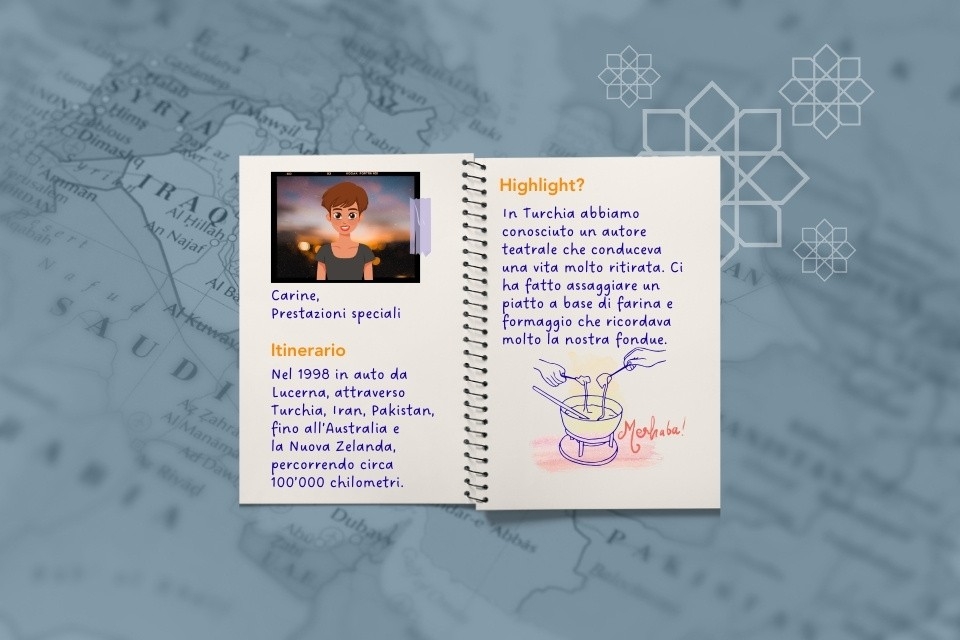 Carine,
Prestazioni speciali
Itinerario
Nel 1998 in auto da
Lucerna, attraverso
Turchia, Iran, Pakistan,
fino all'Australia e
la Nuova Zelanda,
percorrendo circa
100'000 chilometri.
Highlight?
In Turchia abbiamo
conosciuto un autore
teatrale che conduceva
una vita molto ritirata. Ci
ha fatto assaggiare un
piatto a base di farina e
formaggio che ricordava
molto la nostra fondue.
Merhaba!
SYRIA
Hims
Dimashq
Amman
Al Mawşil
Tabriz
Yerevan
Baki
IRAQ
Al Ḥillah
An Najaf
SAUDI
Dubayy
PAKISTAN